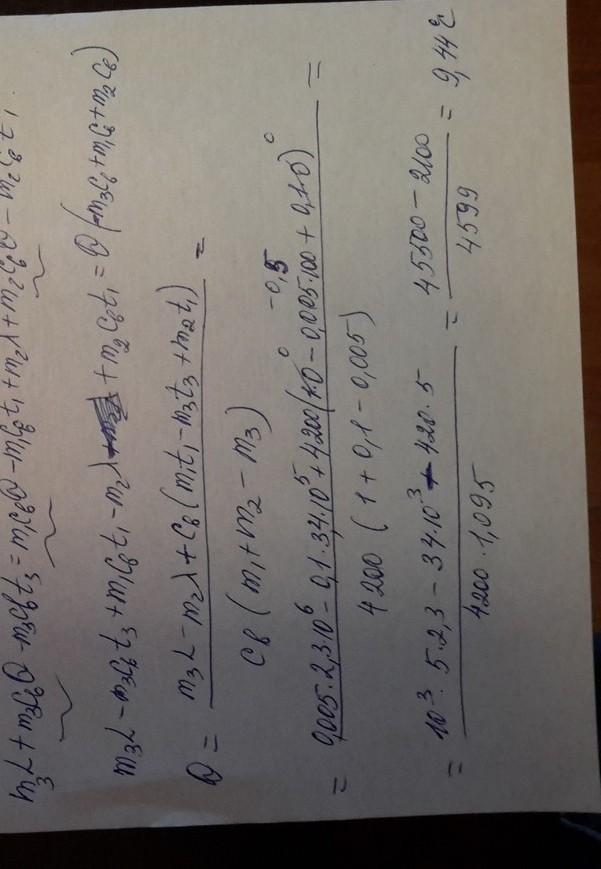 m₃L + m₃cвθ - m₃cвt₃ = m₁cвθ - m₁cвt₁ + m₂λ + m₂cвθ - m₂cвt₁
m₃L - m₃cвt₃ + m₁cвt₁ - m₂λ + m₂cвt₁ = θ(-m₃cв + m₁cв + m₂cв)
θ = (m₃L - m₂λ + cв(m₁t₁ - m₃t₃ + m₂t₁)) / (cв(m₁ + m₂ - m₃)) =
= (0,005·2,3·10⁶ - 0,1·3,4·10⁵ + 4200(1·0 - 0,005·100 + 0,1·0)) / (4200(1 + 0,1 - 0,005)) =
= (10³·5·2,3 - 34·10³ - 420·5) / (4200·1,095) = (45500 - 2100) / 4599 = 9,44°C